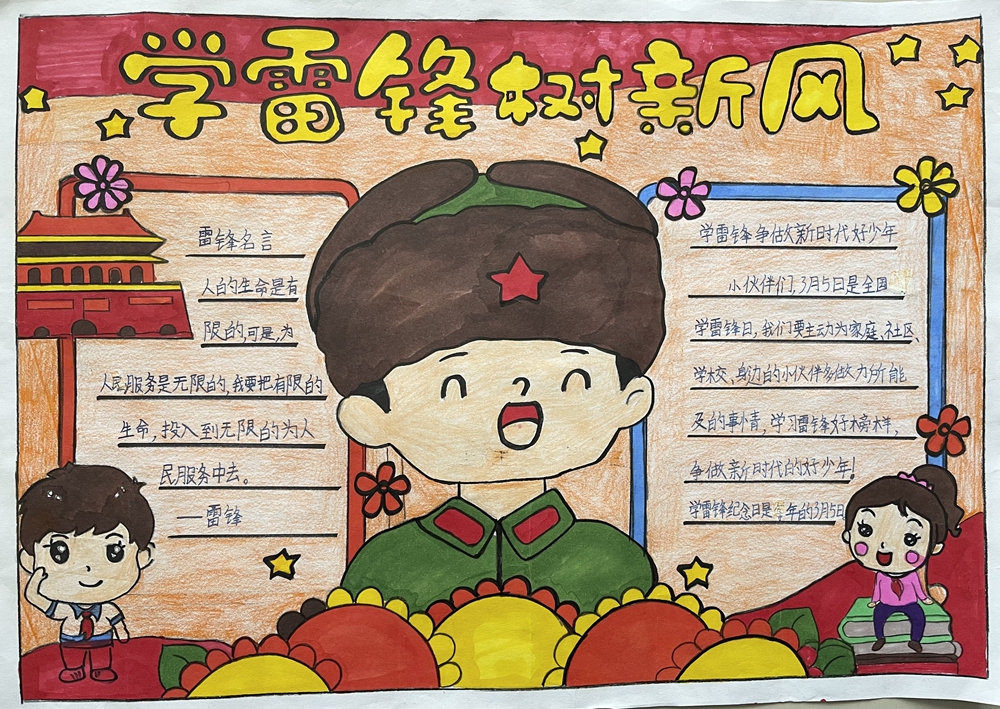 学雷锋树新风
雷锋名言
人的生命是有
限的,可是,为
人民服务是无限的,我要把有限的
生命,投入到无限的为人
民服务中去。
—雷锋
学雷锋争做新时代好少年
小伙伴们,3月5日是全国
学雷锋日,我们要主动为家庭、社区、
学校、身边的小伙伴多做力所能
及的事情,学习雷锋好榜样,
争做新时代的好少年!
学雷锋纪念日是每年的3月5日